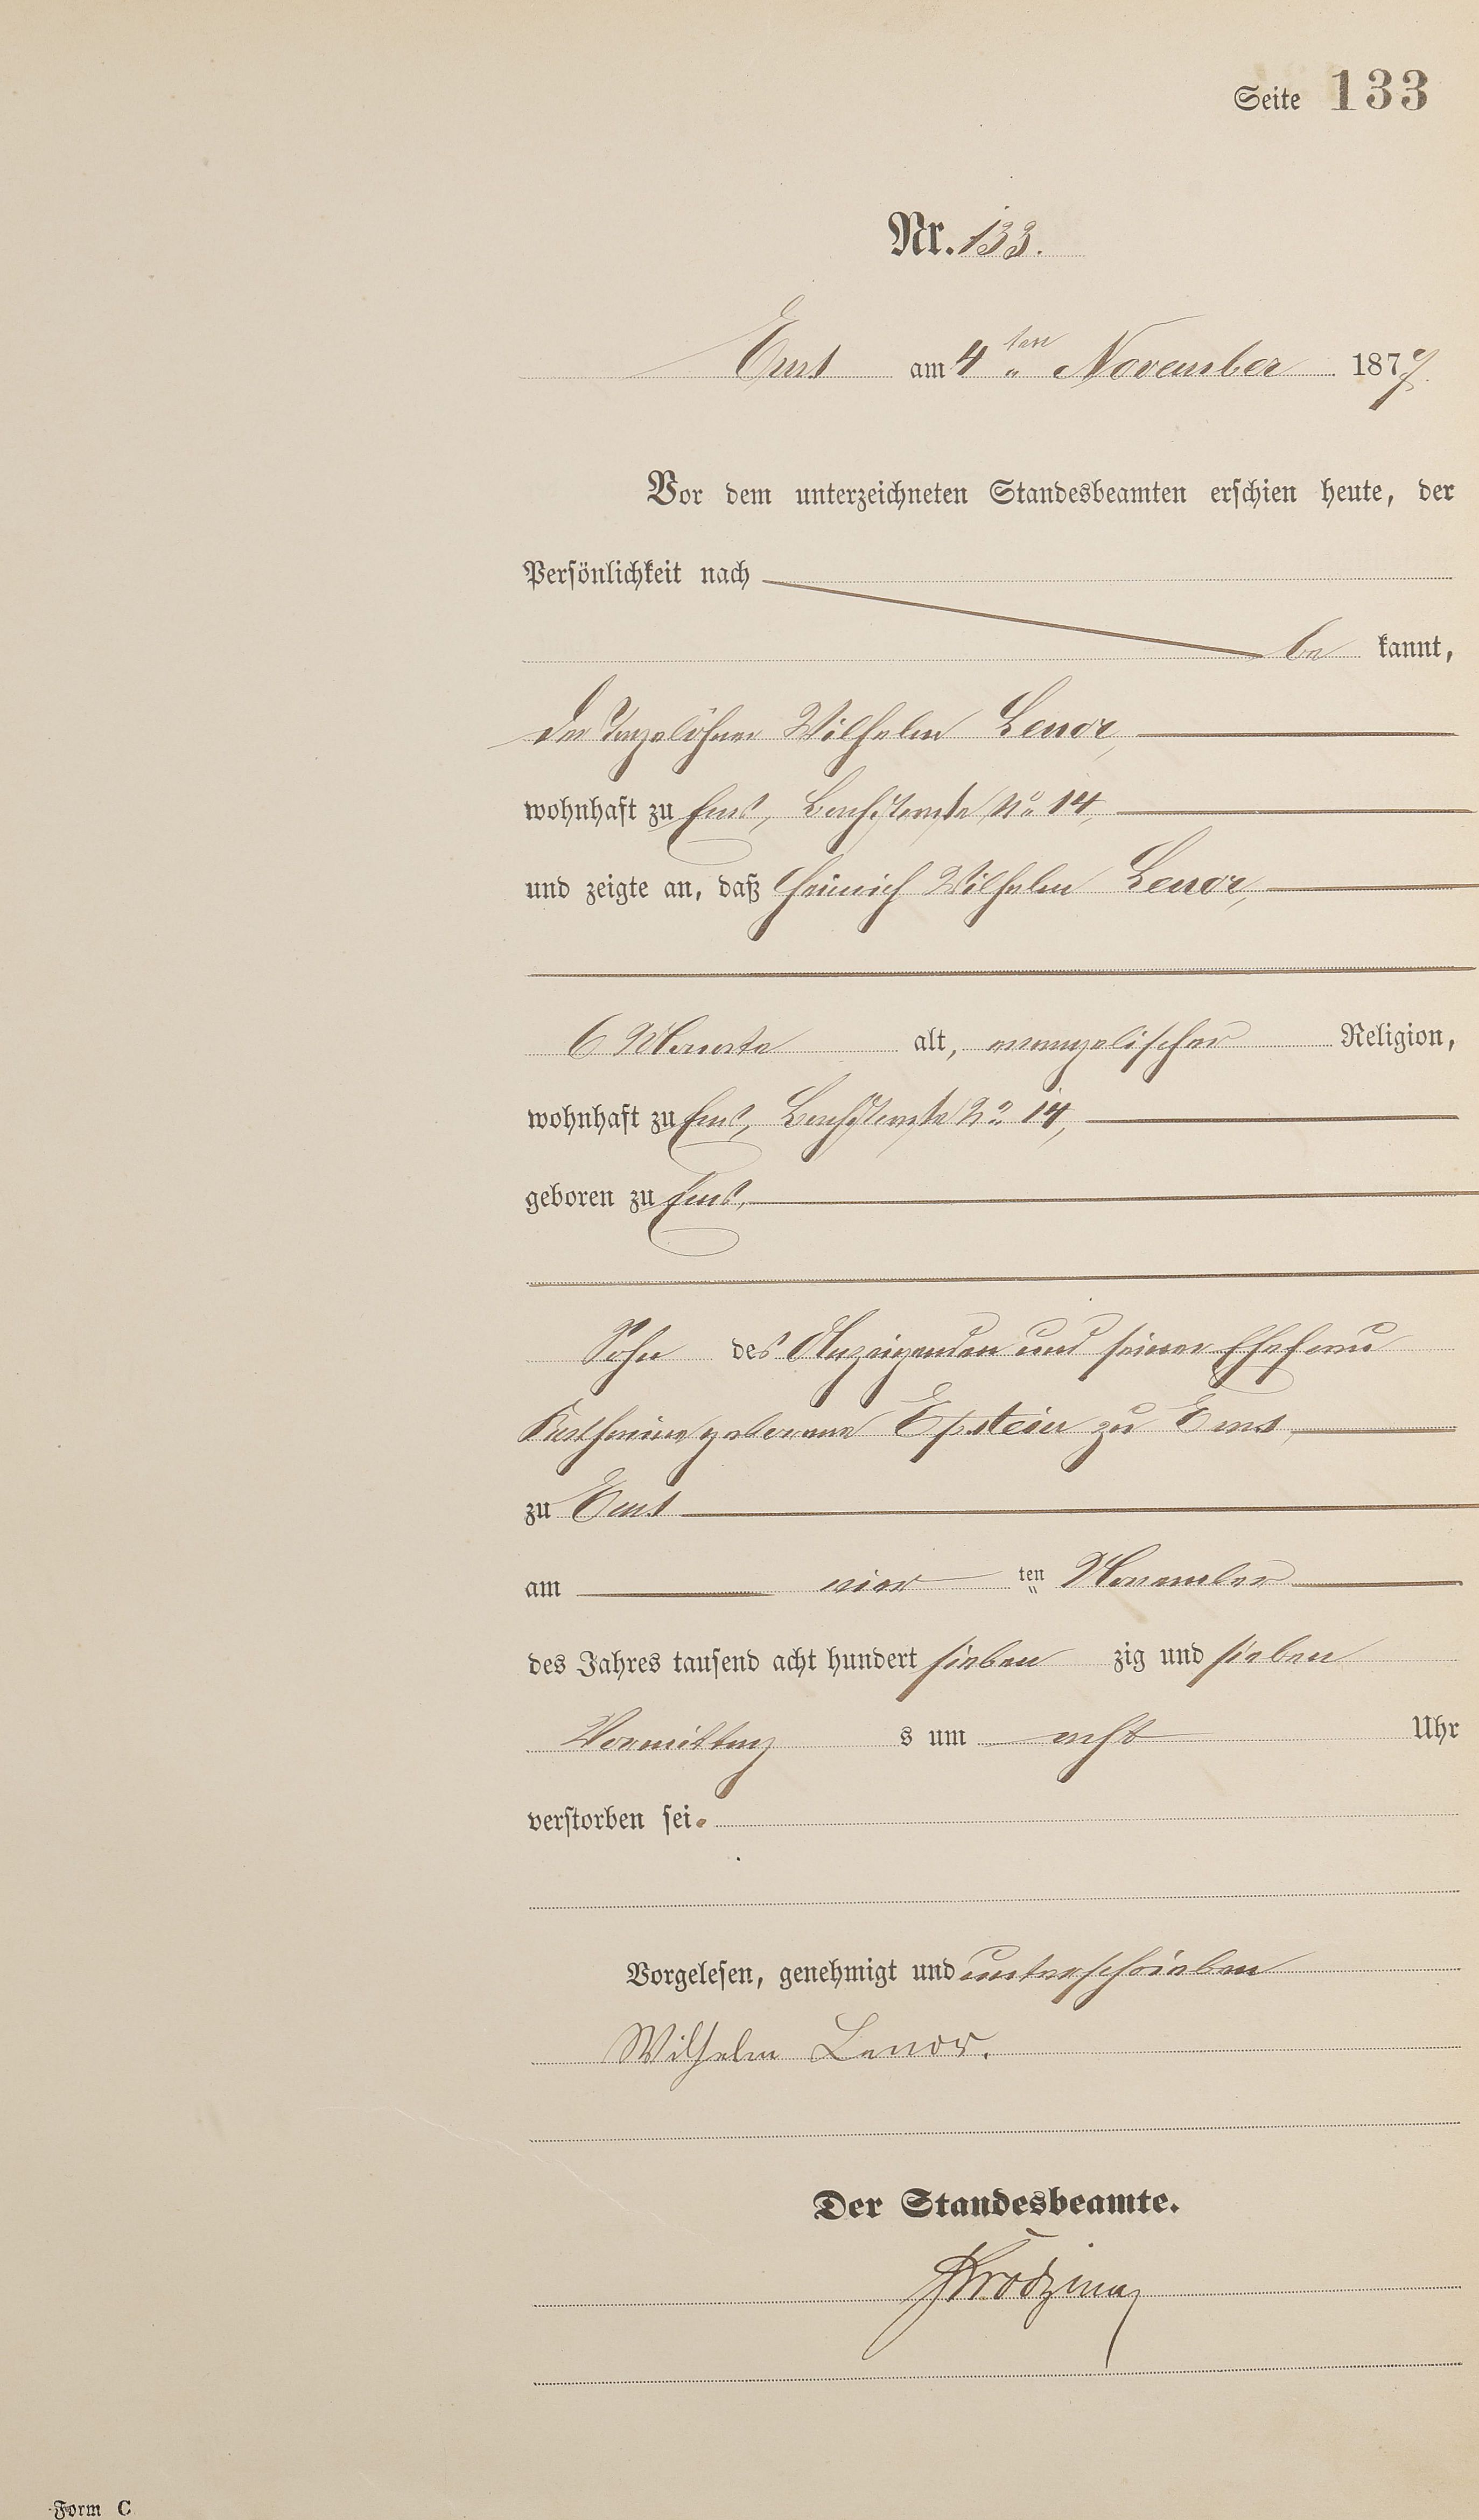 Seite 133
Nr. 133.
Ems am 4ten November 1877.
Vor dem unterzeichneten Standesbeamten erschien heute, der
Persönlichkeit nach
be kannt,
der Tagelöhner Wilhelm Lenor,
wohnhaft zu Ems, Bachstraße No 14,
und zeigte an, daß Heinrich Wilhelm Lenor,
6 Monate alt, evangelischer Religion,
wohnhaft zu Ems, Bachstraße No 14,
geboren zu Ems,
Sohn des Anzeigenden und seiner Ehefrau
Katharina geborene Epstein zu Ems,
zu Ems
am vier ten November
des Jahres tausend acht hundert sieben zig und sieben
Vormittag s um acht Uhr
verstorben sei.
Vorgelesen, genehmigt und unterschrieben
Wilhelm Lenor.
Der Standesbeamte.
Form C